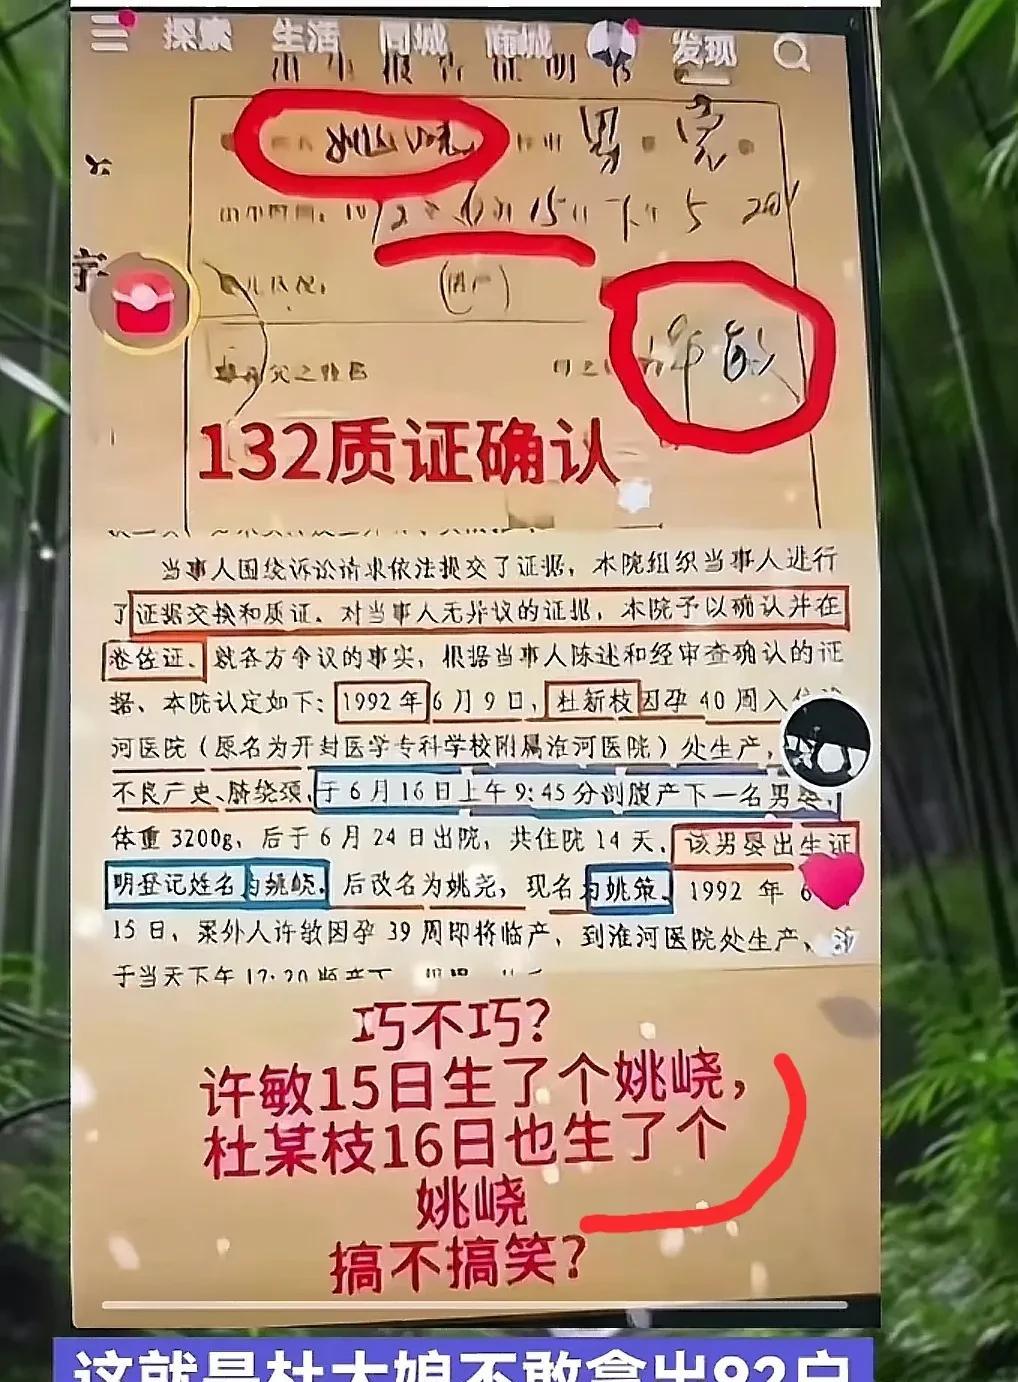 探索 生活 同城 商城 发现
出生报告证明书
姚峣 性别 男
15日 下午 5
母之
许敏
132质证确认
当事人围绕诉讼请求依法提交了证据，本院组织当事人进行
了证据交换和质证。对当事人无异议的证据，本院予以确认并在
卷佐证。就各方争议的事实，根据当事人陈述和经审查确认的证
据，本院认定如下：1992年6月9日，杜新枝因孕40周入住淮
河医院（原名为开封医学专科学校附属淮河医院）处生产，
不良产史、脐绕颈，于6月16日上午9:45分剖腹产下一名男婴，
体重3200g，后于6月24日出院，共住院14天，该男婴出生证
明登记姓名为姚峣。后改名为姚尧，现名为姚策。1992年6
15日，案外人许敏因孕39周即将临产，到淮河医院处生产，
于当天下午17:20顺产下
巧不巧？
许敏15日生了个姚峣，
杜某枝16日也生了个
姚峣
搞不搞笑？
这就是杜大娘不敢拿出92户